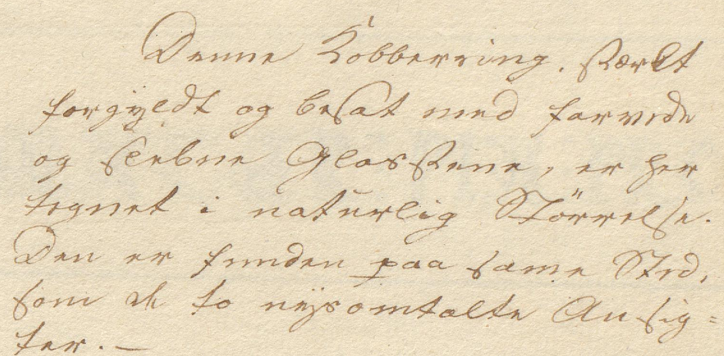 Denne Kobberring, stærkt
forgyldt og besat med farvede
og slebne Glasstene, er her
tegnet i naturlig Störrelse.
Den er funden paa samme Sted,
som de to nysomtalte Ansig=
ter. —